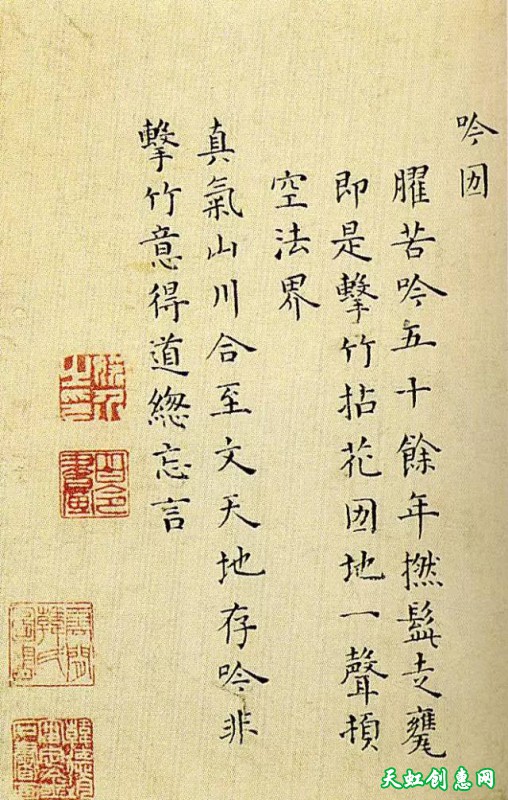 吟㘞
臞苦吟五十餘年撚髭走甕
即是擊竹拈花㘞地一聲頓
空法界
真氣山川合至文天地存吟非
擊竹意得道緫忘言
天虹创惠网